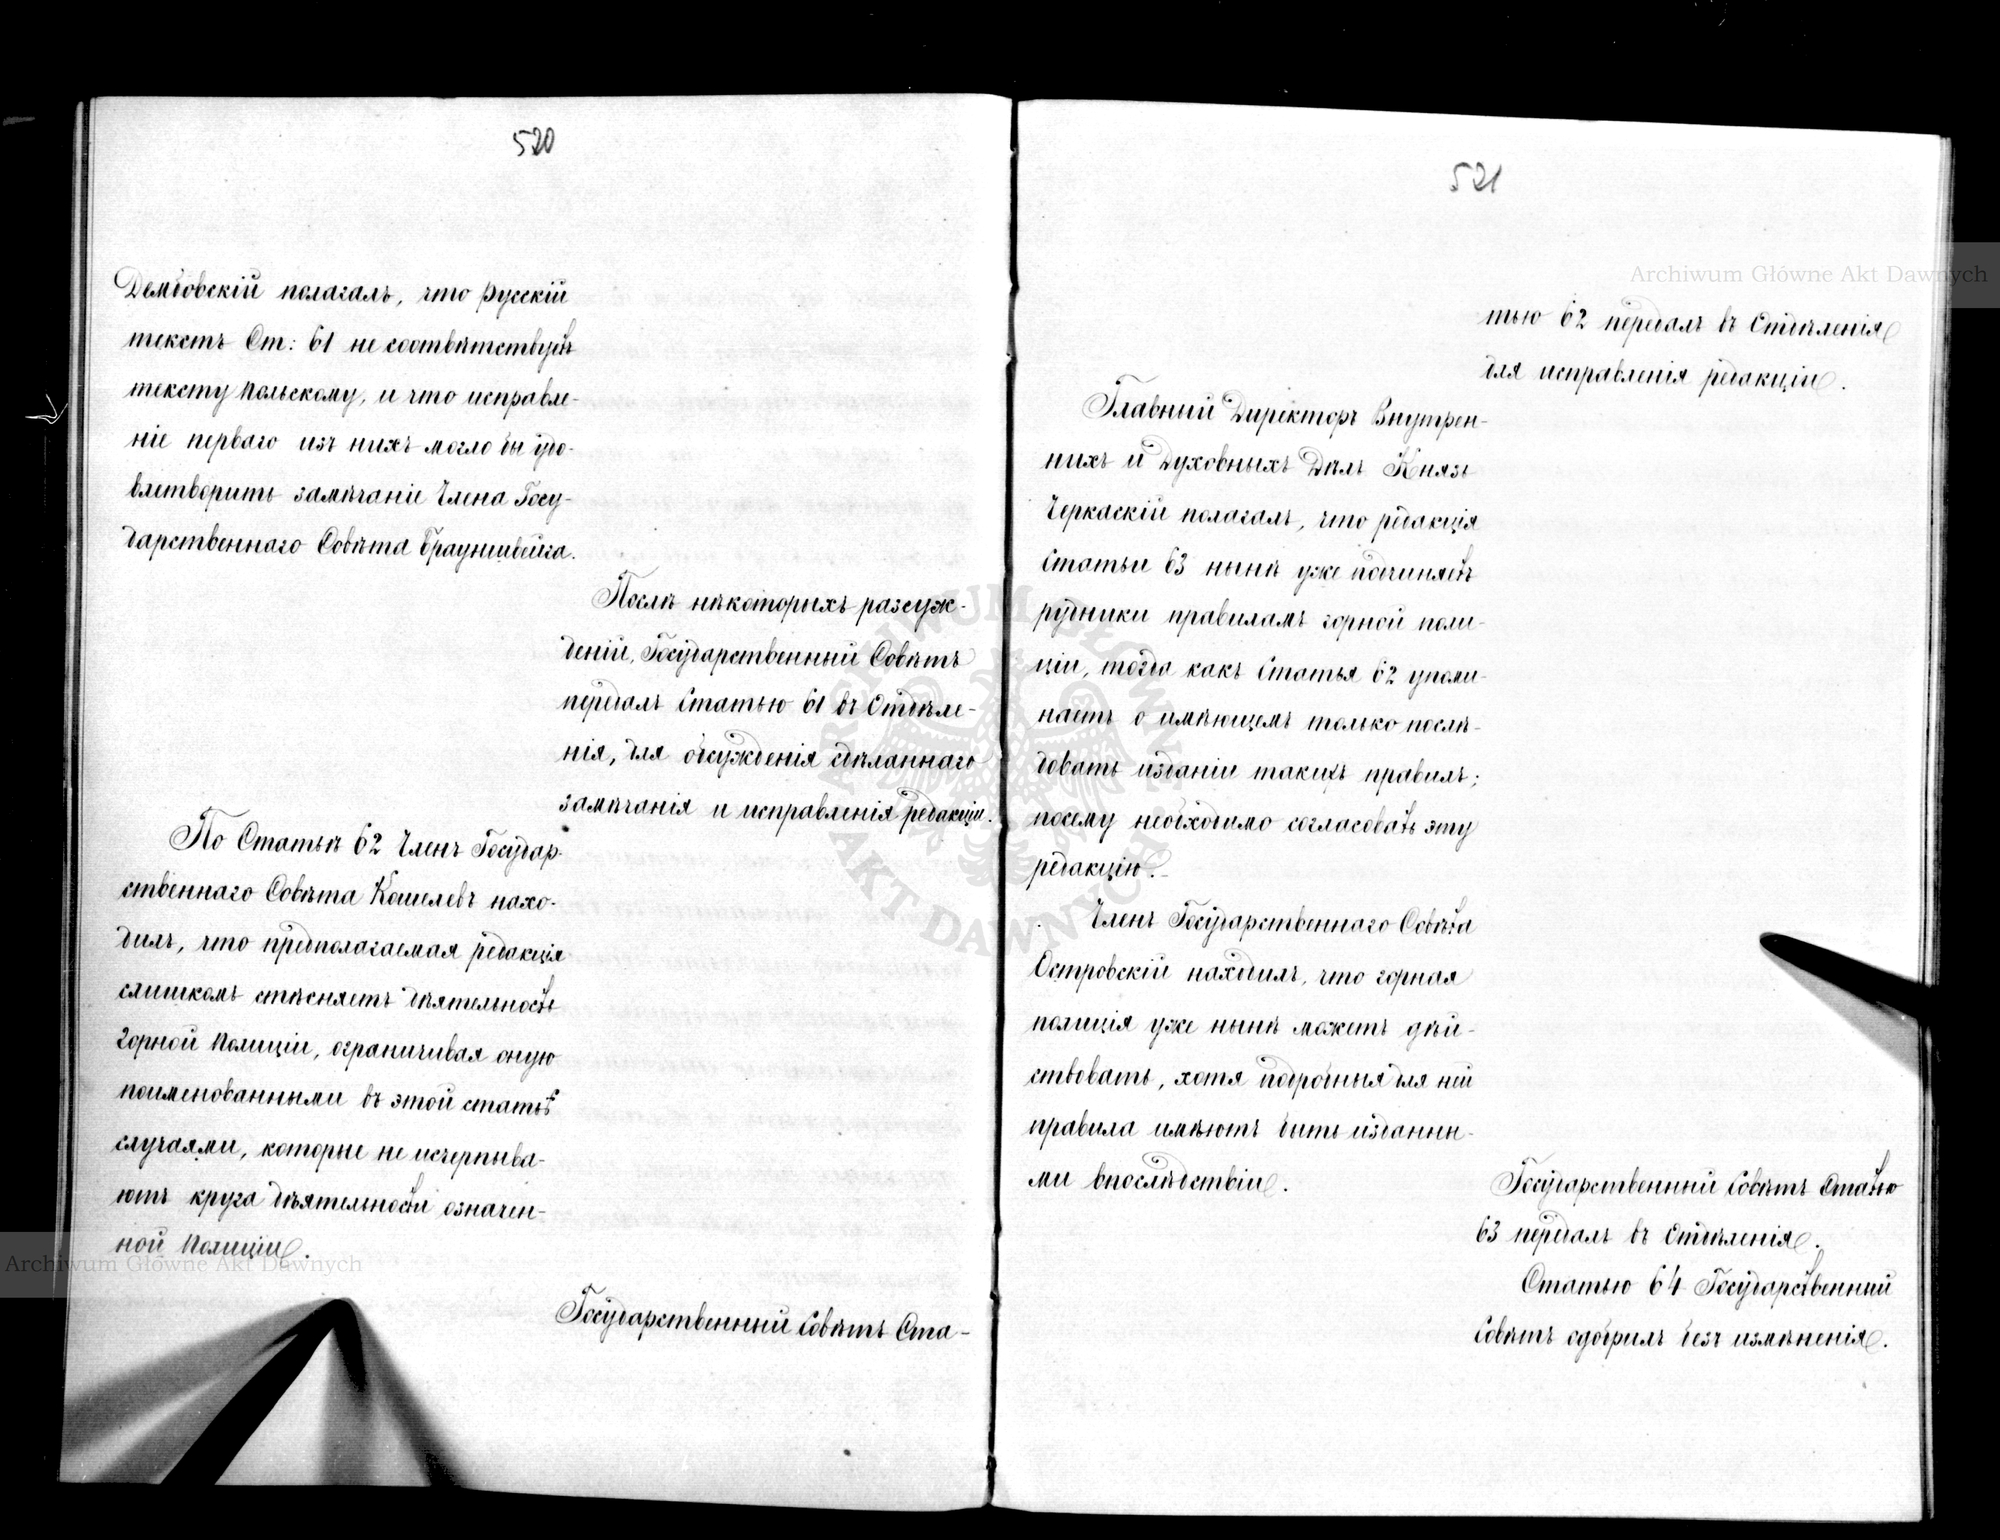 520
Дембовскій полагалъ, что русскій
текстъ Ст: 61 не соотвѣтствуетъ
тексту польскому, и что исправле-
ніе перваго изъ нихъ могло бы удо-
влетворить замѣчаніе Члена Госу-
дарственнаго Совѣта Брауншвейга.
Послѣ нѣкоторыхъ разсуж-
деній, Государственный Совѣтъ
передалъ Статью 61 въ Отдѣле-
нія, для обсужденія сдѣланнаго
замѣчанія и исправленія редакціи.
По Статьѣ 62 Членъ Государ-
ственнаго Совѣта Кошелевъ нахо-
дилъ, что предполагаемая редакція
слишкомъ стѣсняетъ дѣятельность
Горной Полиціи, ограничивая оную
поименованными въ этой статьѣ
случаями, которые не исчерпыва-
ютъ круга дѣятельности означен-
ной Полиціи.
Государственный Совѣтъ Ста-
521
тью 62 передалъ въ Отдѣленія
для исправленія редакціи.
Главный Директоръ Внутрен-
нихъ и Духовныхъ Дѣлъ Князь
Черкаскій полагалъ, что редакція
Статьи 63 нынѣ уже подчиняетъ
рудники правиламъ горной поли-
ціи, тогда какъ Статья 62 упоми-
наетъ о имѣющемъ только послѣ-
довать изданіи такихъ правилъ;
посему необходимо согласовать эту
редакцію.
Членъ Государственнаго Совѣта
Островскій находилъ, что горная
полиція уже нынѣ можетъ дѣй-
ствовать, хотя подробныя для ней
правила имѣютъ быть изданны-
ми впослѣдствіи.
Государственный Совѣтъ Статью
63 передалъ въ Отдѣленія.
Статью 64 Государственный
Совѣтъ одобрилъ безъ измѣненія.
Archiwum Główne Akt Dawnych
Archiwum Główne Akt Dawnych
ARCHIWUM GŁÓWNE AKT DAWNYCH